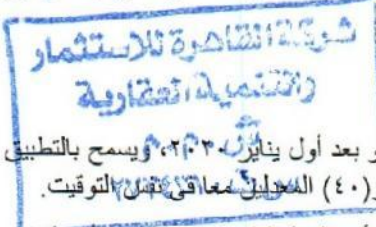 شركة القاهرة للاستثمار
والتنمية العقارية
و بعد أول يناير ٢٠٣٠، ويسمح بالتطبيق
و(٤٠) المعدلين معا في نفس التوقيت.